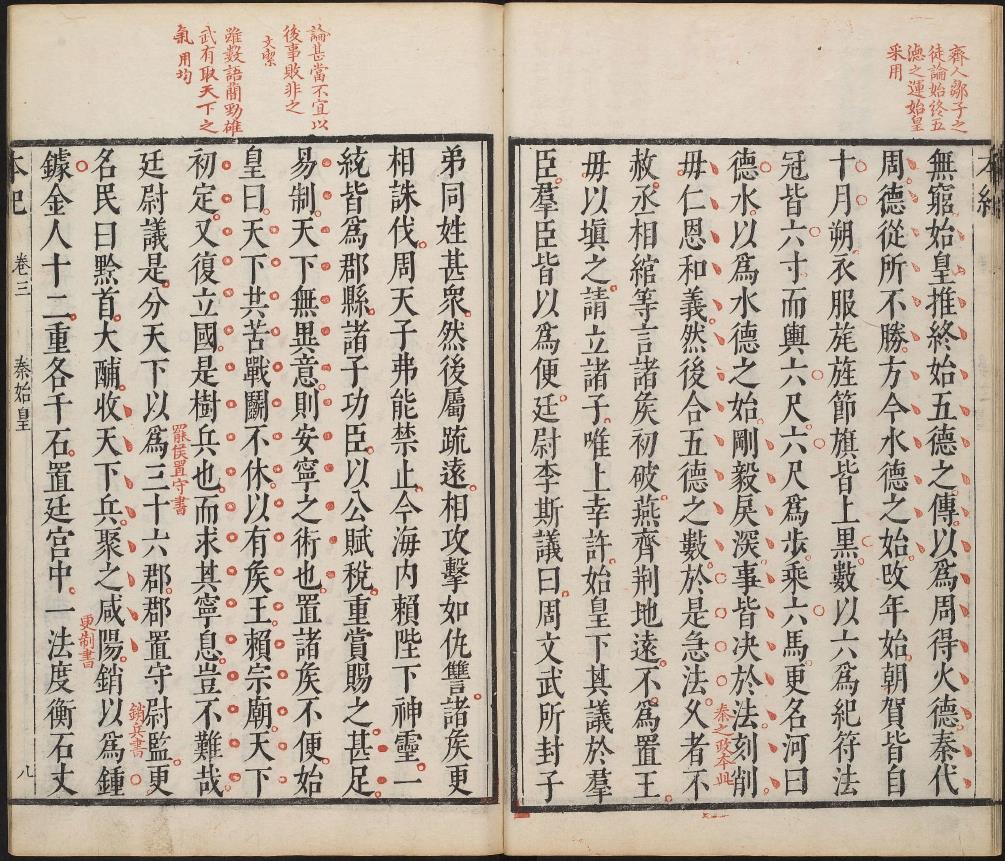 齊人鄒子之
徒論始終五
德之運始皇
采用
本紀
無窮始皇推終始五德之傳以爲周得火德秦代
周德從所不勝方今水德之始改年始朝賀皆自
十月朔衣服旄旌節旗皆上黑數以六爲紀符法
冠皆六寸而輿六尺六尺爲步乘六馬更名河曰
德水以爲水德之始剛毅戾深事皆決於法刻削
毋仁恩和義然後合五德之數於是急法久者不
秦之政本此
赦丞相綰等言諸矦初破燕齊荆地遠不爲置王
毋以塡之請立諸子唯上幸許始皇下其議於羣
臣羣臣皆以爲便廷尉李斯議曰周文武所封子
論甚當不宜以
後事敗非之
文潔
雖數語蕳勁雄
武有取天下之
氣用均
弟同姓甚衆然後屬疏遠相攻擊如仇讐諸矦更
相誅伐周天子弗能禁止今海内賴陛下神靈一
統皆爲郡縣諸子功臣以公賦稅重賞賜之甚足
易制天下無異意則安寧之術也置諸矦不便始
皇曰天下共苦戰鬭不休以有矦王賴宗廟天下
初定又復立國是樹兵也而求其寧息豈不難哉
廷尉議是分天下以爲三十六郡郡置守尉監更
罷侯置守書
名民曰黔首大酺收天下兵聚之咸陽銷以爲鍾
銷兵書
鐻金人十二重各千石置廷宫中一法度衡石丈
更制書
本紀 卷三 秦始皇 八